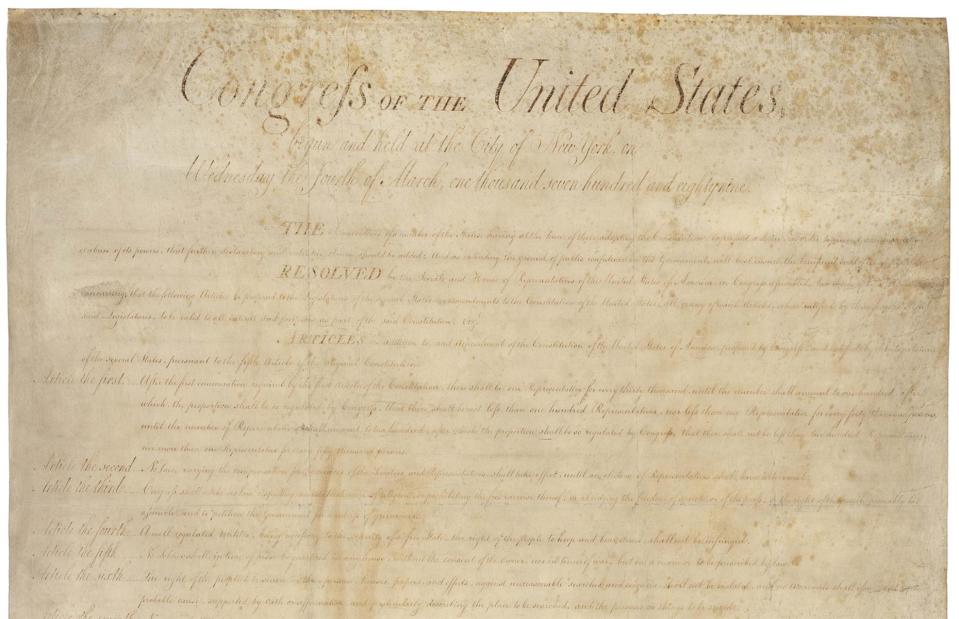 Congress OF THE United States,
begun and held at the City of New York, on
Wednesday the fourth of March, one thousand seven hundred and eighty nine.
THE Conventions of a number of the States, having at the time of their adopting the Constitution, expressed a desire, in order to prevent
of its powers, that further declaratory and restrictive clauses should be added: And as extending the ground of public confidence in the Government, will best ensure the beneficent ends of
RESOLVED by the Senate and House of Representatives of the United States of America, in Congress assembled, two thirds of
concurring, that the following Articles be proposed to the Legislatures of the several States, as amendments to the Constitution of the United States, all, or any of which Articles, when ratified by three fourths of the
said Legislatures, to be valid to all intents and purposes, as part of the said Constitution; vizt.
ARTICLES in addition to, and Amendment of the Constitution of the United States of America, proposed by Congress, and ratified by the Legislatures
of the several States, pursuant to the fifth Article of the original Constitution.
Article the first. After the first enumeration required by the first Article of the Constitution, there shall be one Representative for every thirty thousand, until the number shall amount to one hundred, after
which, the proportion shall be so regulated by Congress, that there shall be not less than one hundred Representatives, nor less than one Representative for every forty thousand persons,
until the number of Representatives shall amount to two hundred, after which the proportion shall be so regulated by Congress, that there shall not be less than two hundred Representatives,
nor more than one Representative for every fifty thousand persons.
Article the second. No law, varying the compensation for the services of the Senators and Representatives, shall take effect, until an election of Representatives shall have intervened.
Article the third. Congress shall make no law respecting an establishment of religion, or prohibiting the free exercise thereof; or abridging the freedom of speech, or of the press; or the right of the people peaceably to
assemble, and to petition the Government for a redress of grievances.
Article the fourth. A well regulated Militia, being necessary to the security of a free State, the right of the people to keep and bear Arms, shall not be infringed.
Article the fifth. No Soldier shall, in time of peace be quartered in any house, without the consent of the Owner, nor in time of war, but in a manner to be prescribed by law.
Article the sixth. The right of the people to be secure in their persons, houses, papers, and effects, against unreasonable searches and seizures, shall not be violated, and no Warrants shall issue, but upon
probable cause, supported by Oath or affirmation, and particularly describing the place to be searched, and the persons or things to be seized.